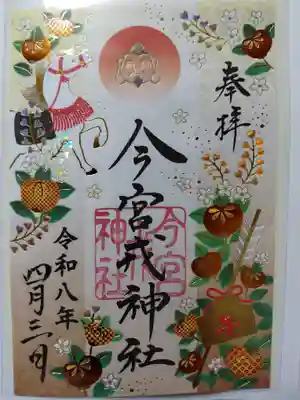 奉拝
今宮戎神社
令和八年
四月三日
今宮
神社